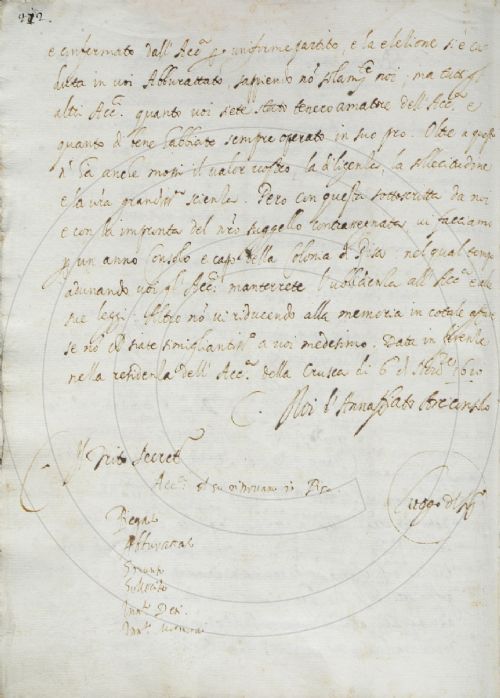 272.
e confermato dall' Acc.ª p uniforme partito, e la elezione si è ca
duta in voi Abburattato, sapiendo nõ solam.te noi, ma tutti gl'
altri Acc.i quanto voi siete stato tenero amatore dell' Acc.ª e
quanto di bene habbiate sempre operato in suo pro. Oltre a questo
n' ha anche mossi il valor vostro, la diligenza, la sollecitudine
e la vr̃a grandiss.ª scienza. Però con questa sottoscritta da noi
e con la impronta del nr̃o suggello contrasegnata, vi facciamo
p un anno Consolo e capo della Colonia di Pisa nel qual tempo
adunando voi gl' Acc.i manterrete l' ubbidienza all' Acc.ª e alle
sue leggi. Altro nõ vi riducendo alla memoria in cotale affare
se nõ che siate simigliantiss.º a voi medesimo. Data in Firenze
nella residenza dell' Acc.ª della Crusca di 6 di 1610
Noi l' Arciconsolo
Secret.º
Acc.i che si ritrovano in Pisa
Luogo del
Abburattato
Sollecito
Inn.to
Inn.to